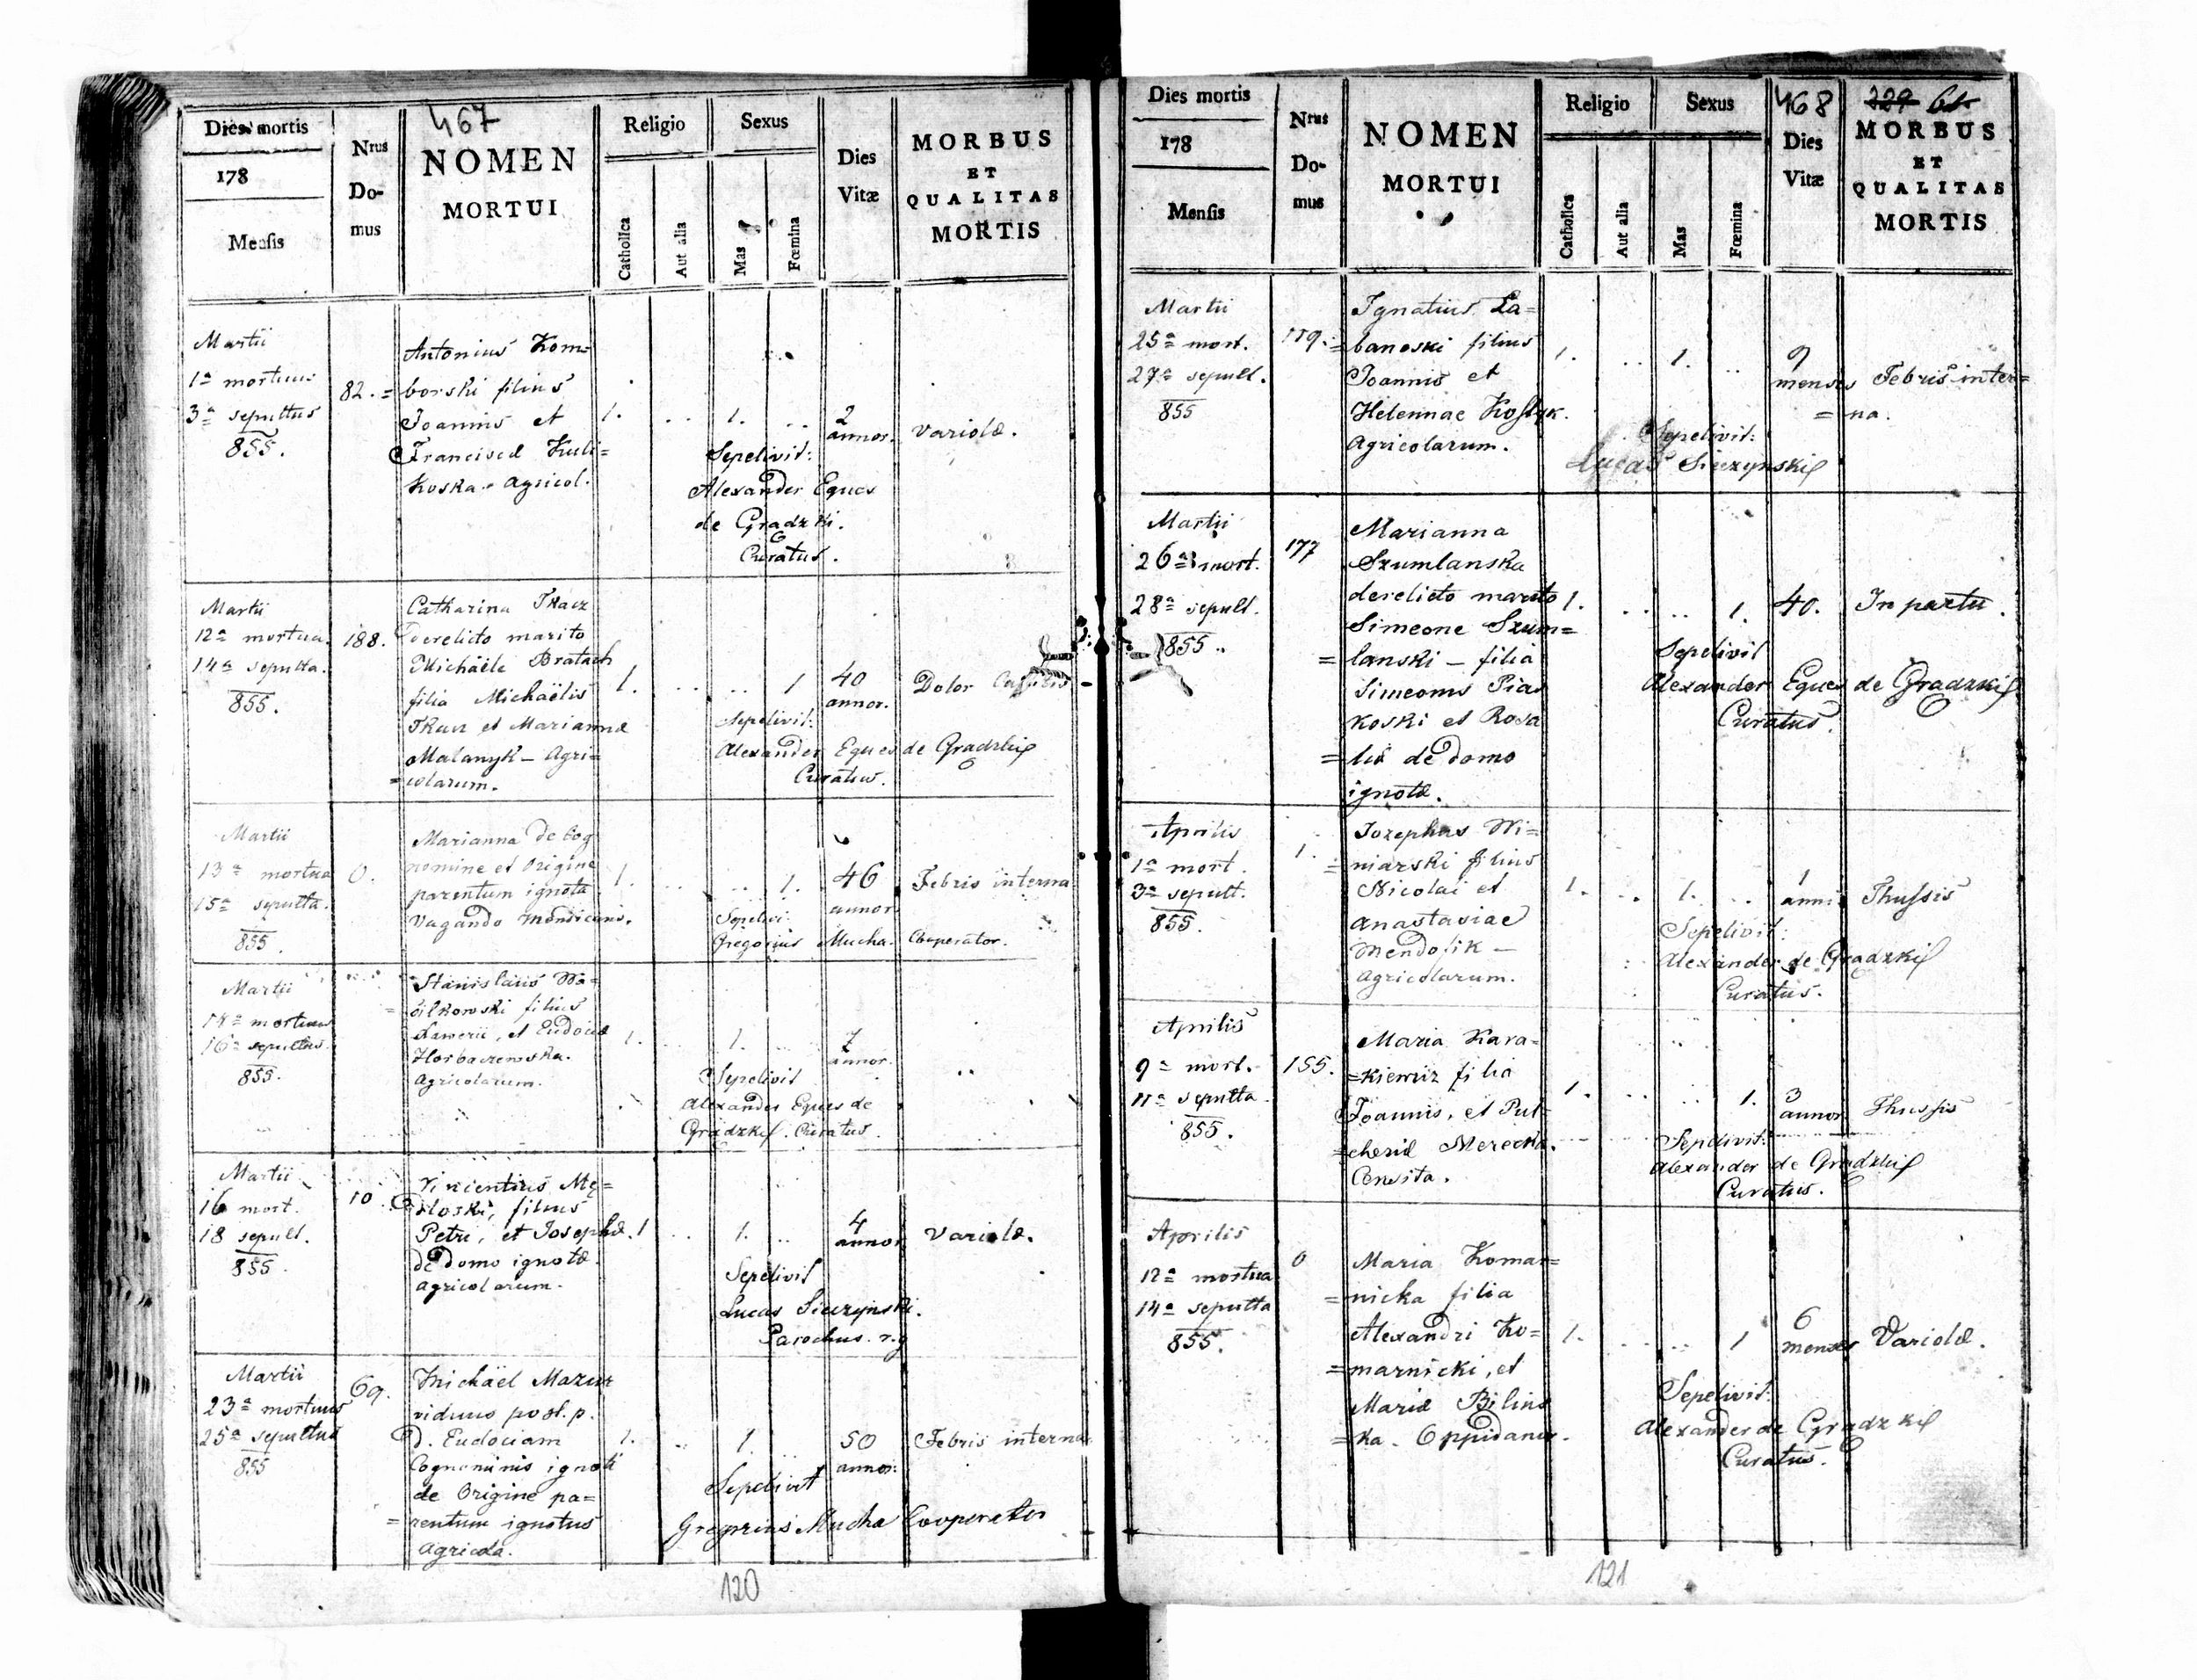 467
Dies mortis
178
Mensis
Nrus
Do-
mus
NOMEN
MORTUI
Religio
Catholica
Aut alia
Sexus
Mas
Fœmina
Dies
Vitæ
MORBUS
ET
QUALITAS
MORTIS
Martii
1a mortuus
3a sepultus
855.
82.
Antonius Kom=
=borski filius
Joannis et
Francisca Kuli=
koska. Agricol.
1. .. 1. ..
2
annor.
Variola.
Sepelivit:
Alexander Eques
de Gradzki.
Curatus.
Martii
12a mortua.
14a sepulta.
855.
188.
Catharina Tkacz
derelicto marito
Michaële Bratach
filia Michaëlis
Tkacz et Marianna
Malanyk - Agri=
=colarum.
1. .. .. 1
40
annor.
Dolor
Sepelivit:
Alexander Eques de Gradzki
Curatus.
Martii
13a mortua
15a sepulta.
855.
0.
Marianna de cog
nomine et Origine
parentum ignota
vagando
1. .. .. 1.
46
annor
Febris interna
Sepelivi
Gregorius Mucha. Cooperator.
Martii
14a mortuus
16a sepultus
855.
Stanislaus Wa=
=silkowski filius
Xawerii, et Eudocia
Horbaczewska.
Agricolarum.
1. 1.
7
annor.
Sepelivit
Alexander Eques de
Gradzki. Curatus.
Martii
16 mort.
18 sepult.
855.
10
Vincentius
filius
Petri, et Josepha.
de domo ignota.
Agricolarum.
1 .. 1. ..
4
annor
Variola.
Sepelivit
Lucas Siczynski.
Parochus. r.g
Martii
23a mortuus
25a sepultus
855
69.
Michaël Mazur
viduus post. p.
d. Eudociam
Cognominis ignoti
de Origine pa=
=rentum ignotus
Agricola.
1. .. 1. ..
50
annor.
Febris interna
Sepelivit
Gregorius Mucha Cooperator
120
Dies mortis
178
Mensis
Nrus
Do-
mus
NOMEN
MORTUI
Religio
Catholica
Aut alia
Sexus
Mas
Fœmina
468
Dies
Vitæ
229
MORBUS
ET
QUALITAS
MORTIS
Martii
25a mort.
27a sepult.
855
119.
Ignatius La=
=banoski filius
Joannis et
Helennae
Agricolarum.
1. .. 1. ..
9
menses
Febris inter=
=na.
Sepelivit:
Lucas Siczynski
Martii
26a mort.
28a sepult.
855.
177
Marianna
Szumlanska
derelicto marito
Simeone Szum=
=lanski - filia
Simeonis Pias
koski et Rosa
=lia de domo
ignota.
1. .. .. 1.
40.
In partu.
Sepelivit
Alexander Eques de Gradzki
Curatus.
Aprilis
1a mort.
3a sepult.
855.
1.
Jozephus Wi=
=niarski filius
Nicolai et
Anastasiae
Mendosik -
Agricolarum.
1. .. 1. ..
1
anni
Thussis
Sepelivit:
Alexander de Gradzki
Curatus.
Aprilis
9a mort.
11a sepulta
855.
155.
Maria Kara=
=kiewicz filia
Joannis, et Pul=
=cheria Merecka.
1. .. .. 1.
3
annor
Thussis
Sepelivit:
Alexander de Gradzki
Curatus.
Aprilis
12a mortua
14a sepulta
855.
0
Maria Komar=
=nicka filia
Alexandri Ko=
=marnicki, et
Maria Bilins
=ka. Oppidanor.
1. .. .. 1
6
menses
Variola.
Sepelivit:
Alexander de Gradzki
Curatus.
121